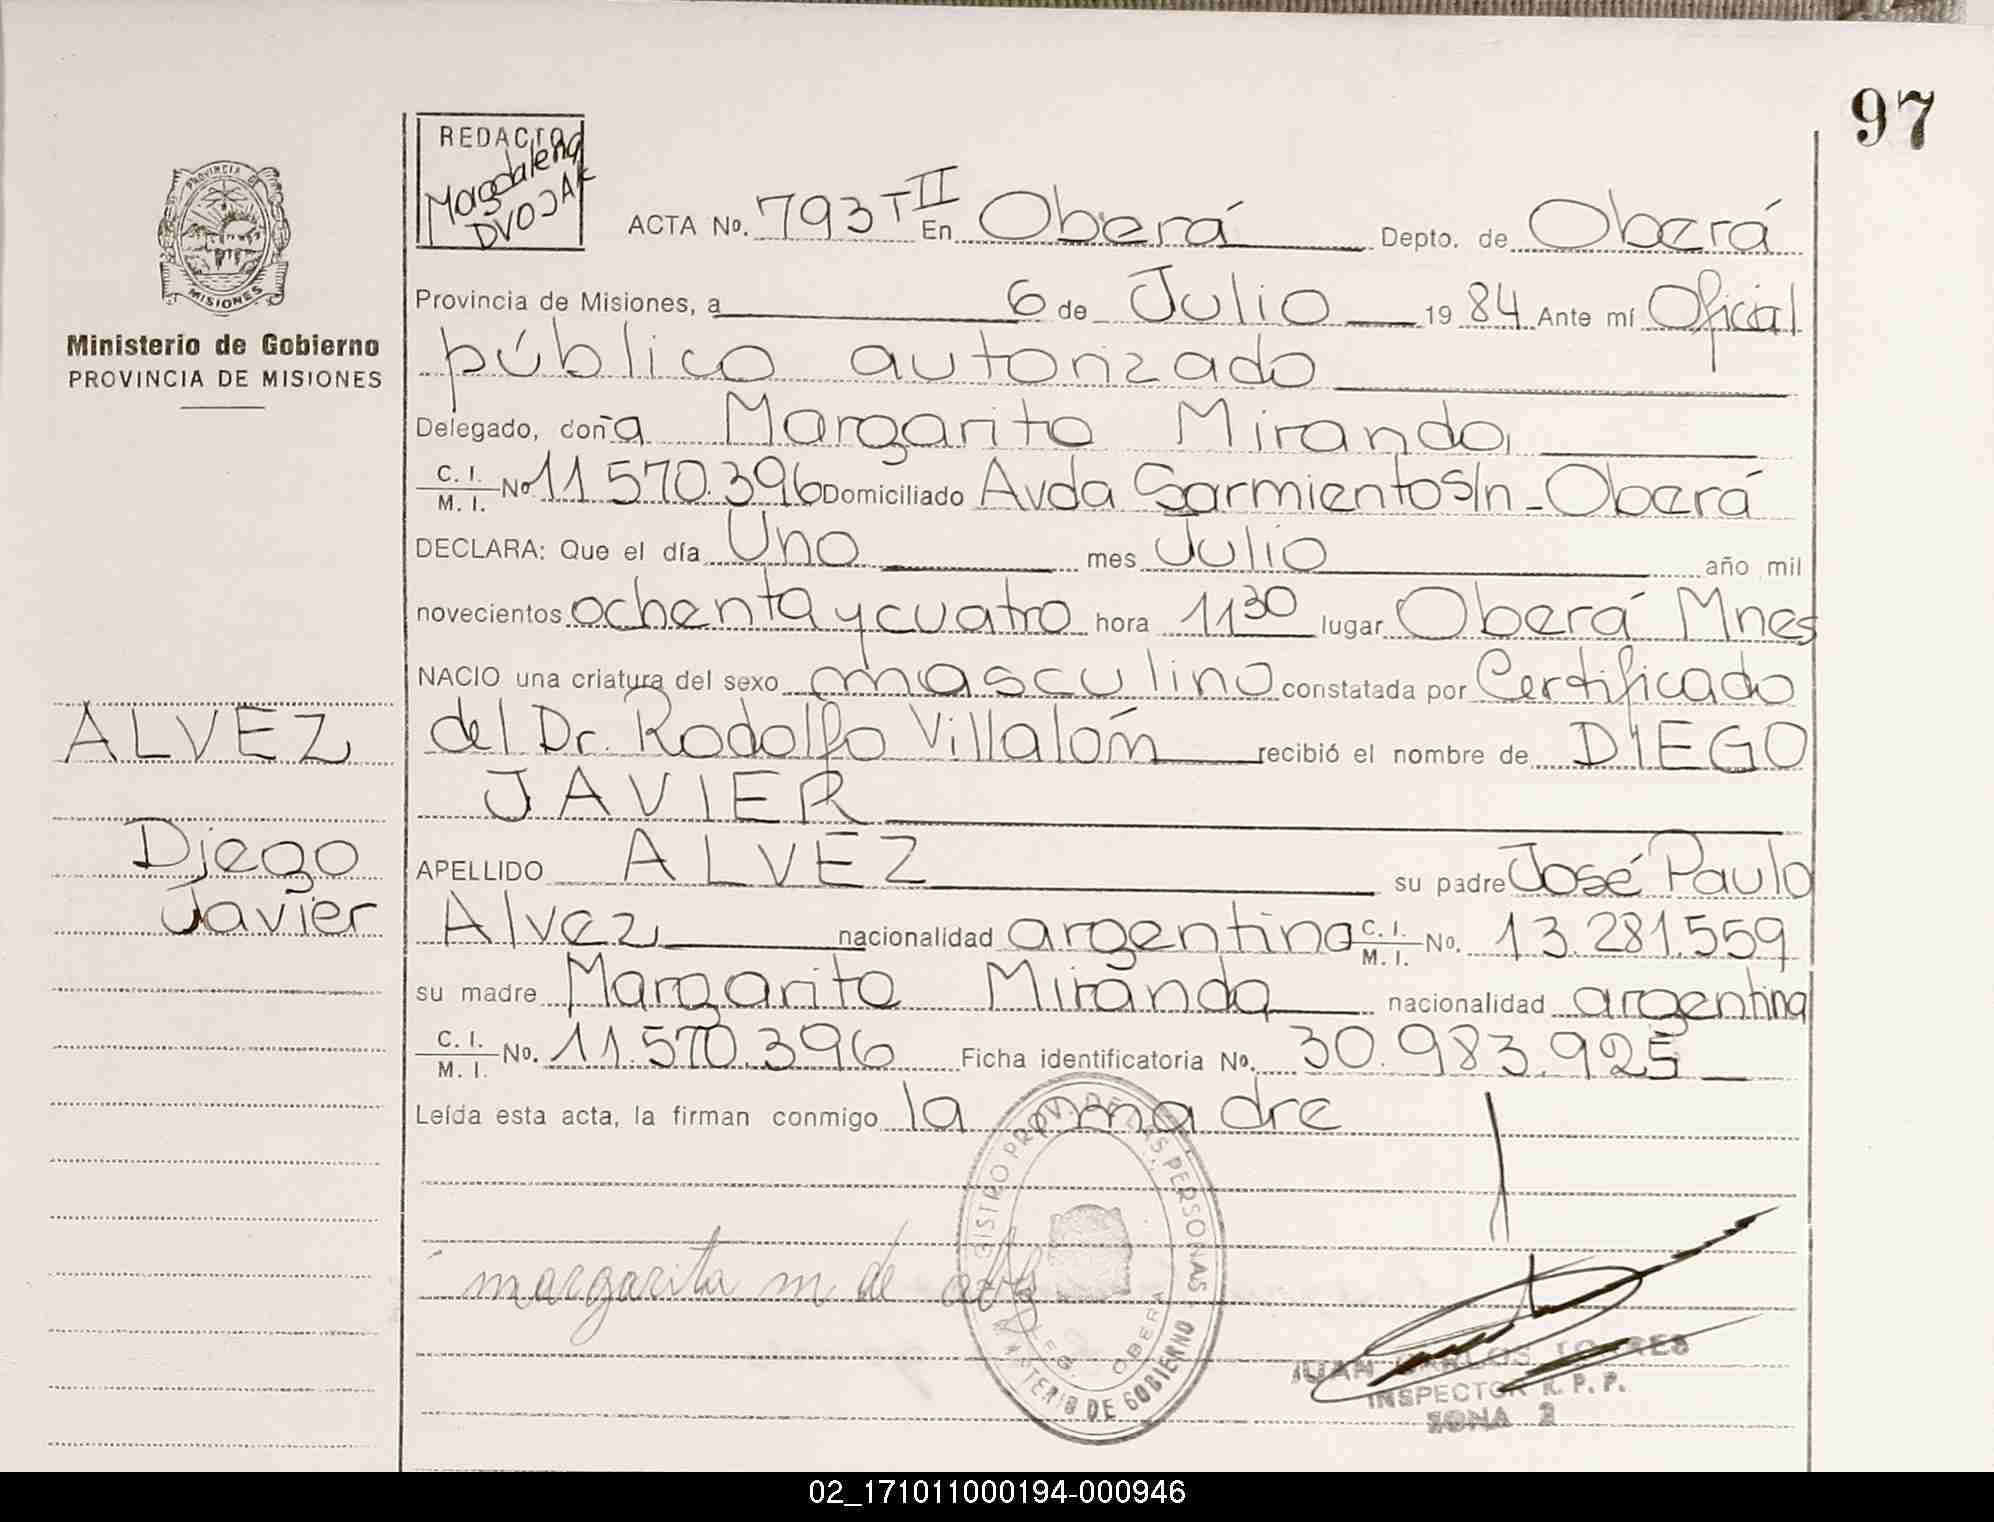 97
REDACTO
Magdalena
DVOJAK
PROVINCIA DE
MISIONES
Ministerio de Gobierno
PROVINCIA DE MISIONES
ACTA No. 793 T II En Oberá Depto. de Oberá
Provincia de Misiones, a 6 de Julio 19 84 Ante mí Oficial
público autorizado
Delegado, doña Margarita Miranda
C. I. M. I. No 11 570.396 Domiciliado Avda Sarmiento S/n - Oberá
DECLARA: Que el día Uno mes Julio año mil
novecientos ochenta y cuatro hora 11 30 lugar Oberá Mnes
NACIO una criatura del sexo masculino constatada por Certificado
del Dr. Rodolfo Villalón recibió el nombre de DIEGO
JAVIER
APELLIDO ALVEZ su padre José Paulo
Alvez nacionalidad argentina C. I. M. I. No. 13.281.559
su madre Margarita Miranda nacionalidad argentina
C. I. M. I. No. 11.570.396 Ficha identificatoria No. 30.983.925
Leída esta acta, la firman conmigo la madre
ALVEZ
Diego
Javier
margarita m de
REGISTRO PROV. DE LAS PERSONAS
MINISTERIO DE GOBIERNO
OBERA
JUAN CARLOS TORRES
INSPECTOR R. P. P.
ZONA 2
02_171011000194-000946